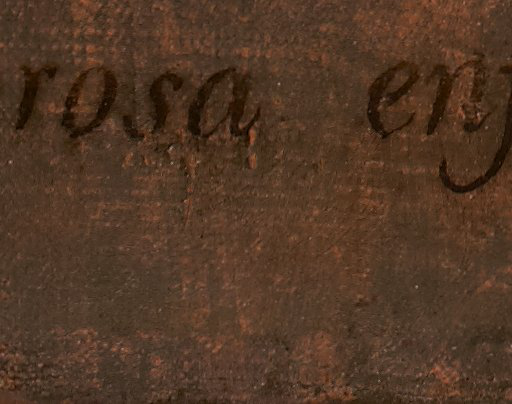 rosa enf